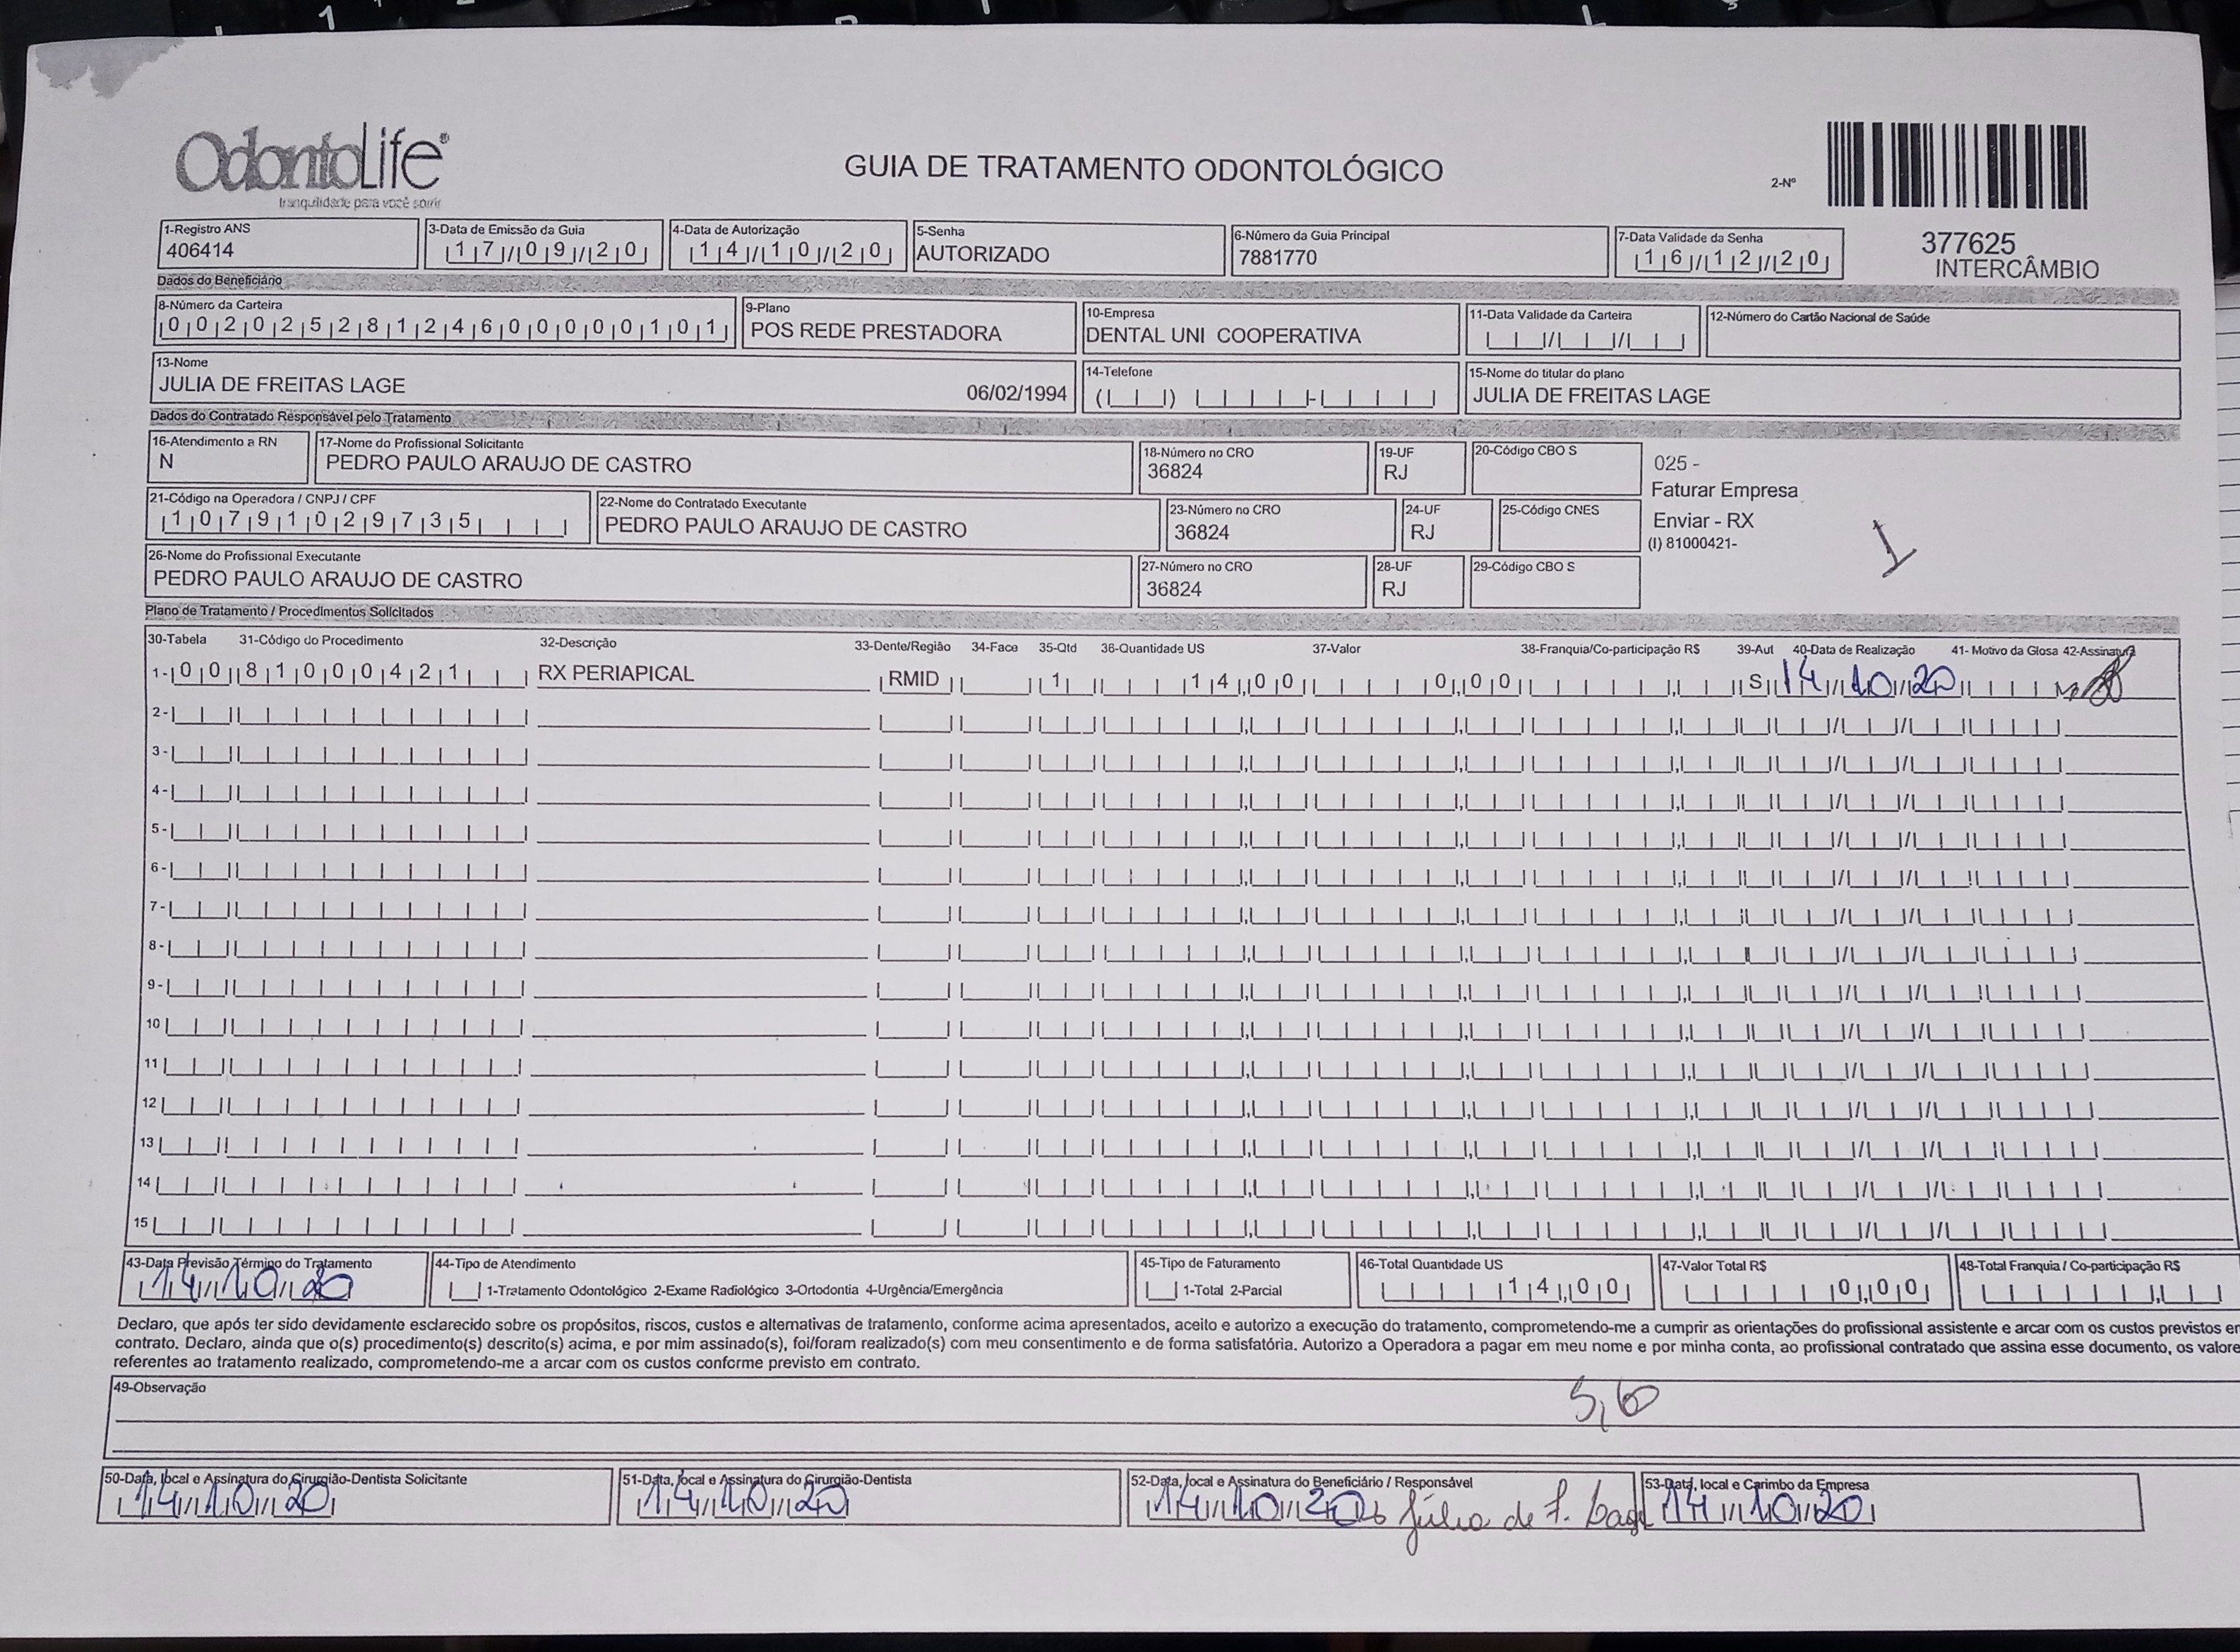 OdontoLife®
tranquilidade para você sorrir
GUIA DE TRATAMENTO ODONTOLÓGICO
2-Nº
377625
INTERCÂMBIO
1-Registro ANS
406414
3-Data de Emissão da Guia
17/09/20
4-Data de Autorização
14/10/20
5-Senha
AUTORIZADO
6-Número da Guia Principal
7881770
7-Data Validade da Senha
16/12/20
Dados do Beneficiário
8-Número da Carteira
00202528124600000101
9-Plano
POS REDE PRESTADORA
10-Empresa
DENTAL UNI COOPERATIVA
11-Data Validade da Carteira
12-Número do Cartão Nacional de Saúde
13-Nome
JULIA DE FREITAS LAGE 06/02/1994
14-Telefone
15-Nome do titular do plano
JULIA DE FREITAS LAGE
Dados do Contratado Responsável pelo Tratamento
16-Atendimento a RN
N
17-Nome do Profissional Solicitante
PEDRO PAULO ARAUJO DE CASTRO
18-Número no CRO
36824
19-UF
RJ
20-Código CBO S
025 -
Faturar Empresa
Enviar - RX
(I) 81000421-
1
21-Código na Operadora / CNPJ / CPF
10791029735
22-Nome do Contratado Executante
PEDRO PAULO ARAUJO DE CASTRO
23-Número no CRO
36824
24-UF
RJ
25-Código CNES
26-Nome do Profissional Executante
PEDRO PAULO ARAUJO DE CASTRO
27-Número no CRO
36824
28-UF
RJ
29-Código CBO S
Plano de Tratamento / Procedimentos Solicitados
30-Tabela 31-Código do Procedimento 32-Descrição 33-Dente/Região 34-Face 35-Qtd 36-Quantidade US 37-Valor 38-Franquia/Co-participação R$ 39-Aut 40-Data de Realização 41- Motivo da Glosa 42-Assinatura
1- 00 81000421 RX PERIAPICAL RMID 1 14,00 0,00 S 14/10/20
2-
3-
4-
5-
6-
7-
8-
9-
10
11
12
13
14
15
43-Data Previsão Término do Tratamento
14/10/20
44-Tipo de Atendimento
1-Tratamento Odontológico 2-Exame Radiológico 3-Ortodontia 4-Urgência/Emergência
45-Tipo de Faturamento
1-Total 2-Parcial
46-Total Quantidade US
14,00
47-Valor Total R$
0,00
48-Total Franquia / Co-participação R$
Declaro, que após ter sido devidamente esclarecido sobre os propósitos, riscos, custos e alternativas de tratamento, conforme acima apresentados, aceito e autorizo a execução do tratamento, comprometendo-me a cumprir as orientações do profissional assistente e arcar com os custos previstos em
contrato. Declaro, ainda que o(s) procedimento(s) descrito(s) acima, e por mim assinado(s), foi/foram realizado(s) com meu consentimento e de forma satisfatória. Autorizo a Operadora a pagar em meu nome e por minha conta, ao profissional contratado que assina esse documento, os valore
referentes ao tratamento realizado, comprometendo-me a arcar com os custos conforme previsto em contrato.
49-Observação
5,60
50-Data, local e Assinatura do Cirurgião-Dentista Solicitante
14/10/20
51-Data, local e Assinatura do Cirurgião-Dentista
14/10/20
52-Data, local e Assinatura do Beneficiário / Responsável
14/10/20 Júlia de F. Lage
53-Data, local e Carimbo da Empresa
14/10/20